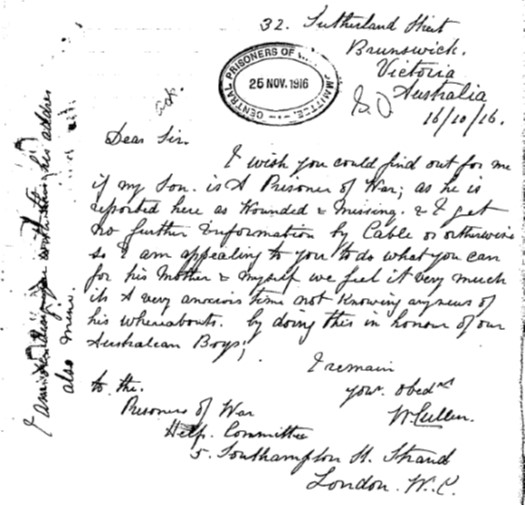 32. Sutherland Street
Brunswick.
Victoria
Australia
16/10/16.
CENTRAL PRISONERS OF COMMITTEE
25 NOV. 1916
Dear Sir.
I wish you could find out for me
if my Son. is A Prisoner of War; as he is
reported here as Wounded & Missing. & I get
no further Information by Cable or otherwise
so I am appealing to you to do what you can
for his Mother & myself we feel it very much
its A very anxious time not Knowing any news of
his whereabouts. by doing this in honour of our
Australian Boys;
I remain
your. obed
W Cullen.
to the.
Prisoners of War
Help. Committee
5. Southampton St. Strand
London. W.C.
I am sending you with this his address
also mine.